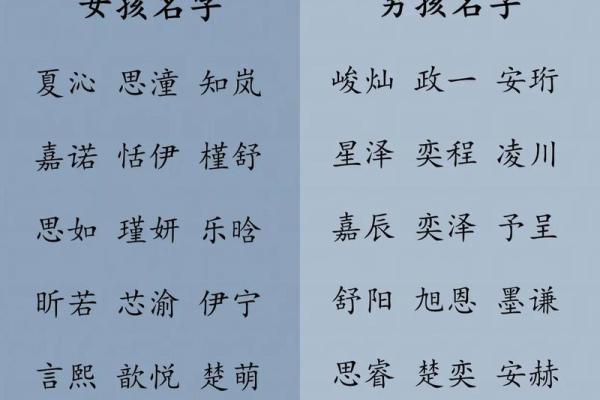 女孩名字
夏沁 思潼 知岚
嘉诺 恬伊 槿舒
思如 瑾妍 乐晗
昕若 芯渝 伊宁
言熙 歆悦 楚萌
男孩名字
峻灿 政一 安珩
星泽 奕程 凌川
嘉辰 奕泽 予呈
舒阳 旭恩 墨谦
思睿 楚奕 安赫